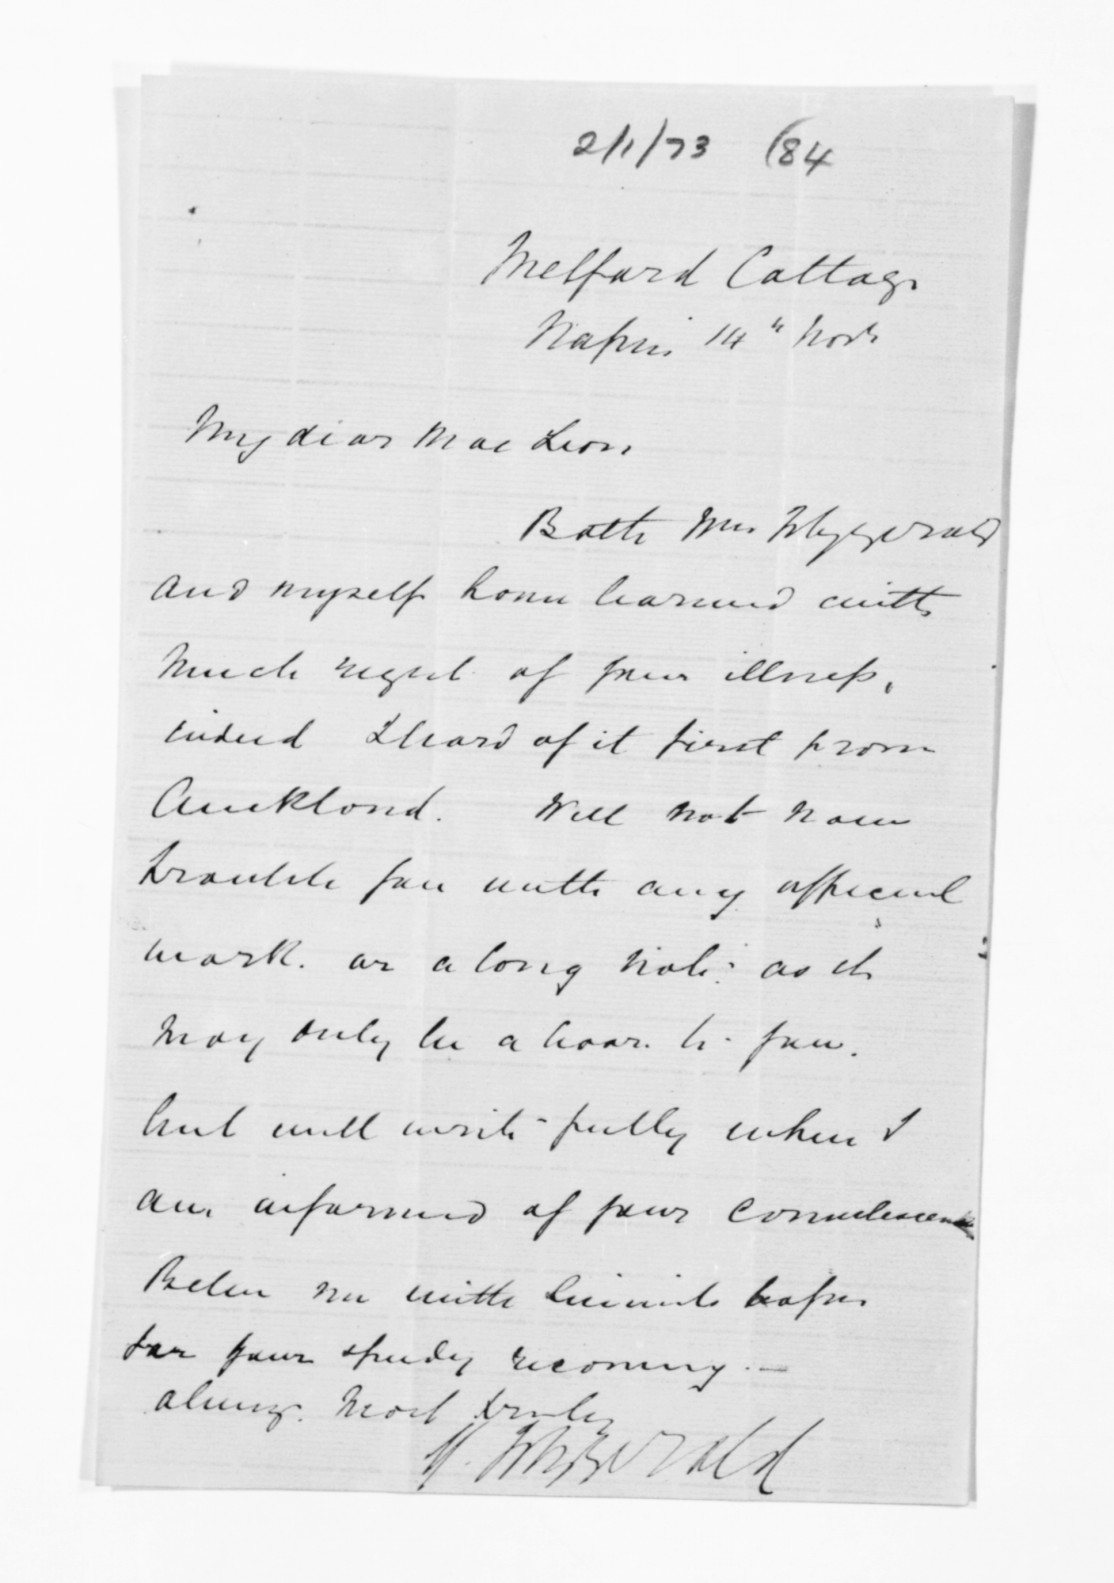 2/1/73 (84
Melford Cottage
Napier 14th Novr
My dear MacLean
Both Mrs Fitzgerald
and myself have learned with
much regret of your illness,
indeed I heard of it first from
Auckland. Will not now
trouble you with any official
work. or a long note. as it
may only be a boar. to you.
but will write fully when I
am informed of your convalescence
Believe me with sincerest hopes
for your speedy recovery. —
always. most truly
Fitzgerald